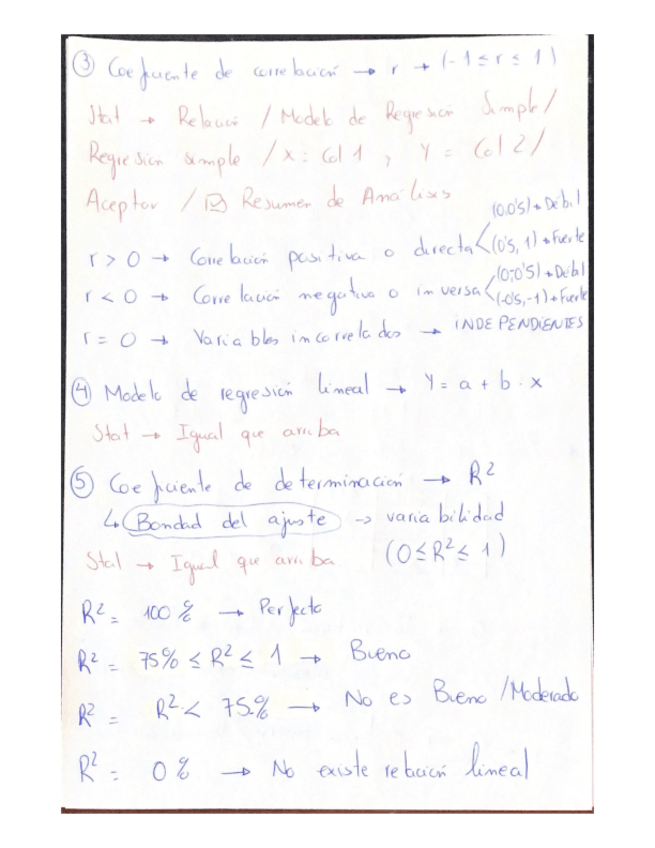 ③ Coeficiente de correlación → r → (-1 ≤ r ≤ 1)
Stat → Relación / Modelo de Regresión Simple /
Regresión simple / x = Col 1 , Y = Col 2 /
Aceptar / ☑ Resumen de Análisis
(0,0'5) → Débil
r > 0 → Correlación positiva o directa < (0'5, 1) → Fuerte
(0;-0'5) → Débil
r < 0 → Correlación negativa o inversa < (-0'5,-1) → Fuerte
r = 0 → Variables incorrelados → INDEPENDIENTES
④ Modelo de regresión lineal → Y = a + b · x
Stat → Igual que arriba
⑤ Coeficiente de determinación → R²
↳ Bondad del ajuste → variabilidad
Stat → Igual que arriba (0 ≤ R² ≤ 1)
R² = 100 % → Perfecto
R² = 75% ≤ R² ≤ 1 → Bueno
R² = R² < 75% → No es Bueno / Moderado
R² = 0 % → No existe relación lineal